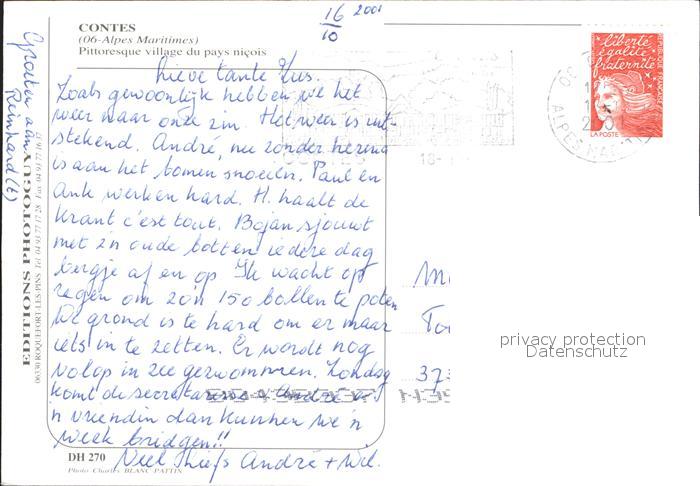 CONTES
(06-Alpes Maritimes)
Pittoresque village du pays niçois
16/10 2001
Lieve tante Zus.
Zoals gewoonlijk hebben we het
weer naar onze zin. Het weer is uit-
stekend. André, nu zonder hernia
is aan het bomen snoeien. Paul en
Ank werken hard. H. haalt de
krant c'est tout. Bojan sjouwt
met z'n oude botten iedere dag
bergje af en op. Ik wacht op
regen om zo'n 150 bollen te poten
De grond is te hard om er maar
iets in te zetten. Er wordt nog
volop in zee gezwommen. Zondag
komt de secretaresse v. André en
'n vriendin dan kunnen we 'n
week bridgen!!
Veel liefs André + Wil.
Groeten
Reinhard (t)
EDITIONS PHOTOGUY
06330 ROQUEFORT-LES-PINS Tél 04 93 77 17 28
DH 270
Photo Charles BLANC PATTIN
liberté
égalité
fraternité
RÉPUBLIQUE FRANÇAISE
LA POSTE
ALPES MARIT
18-
M
To
373
privacy protection
Datenschutz